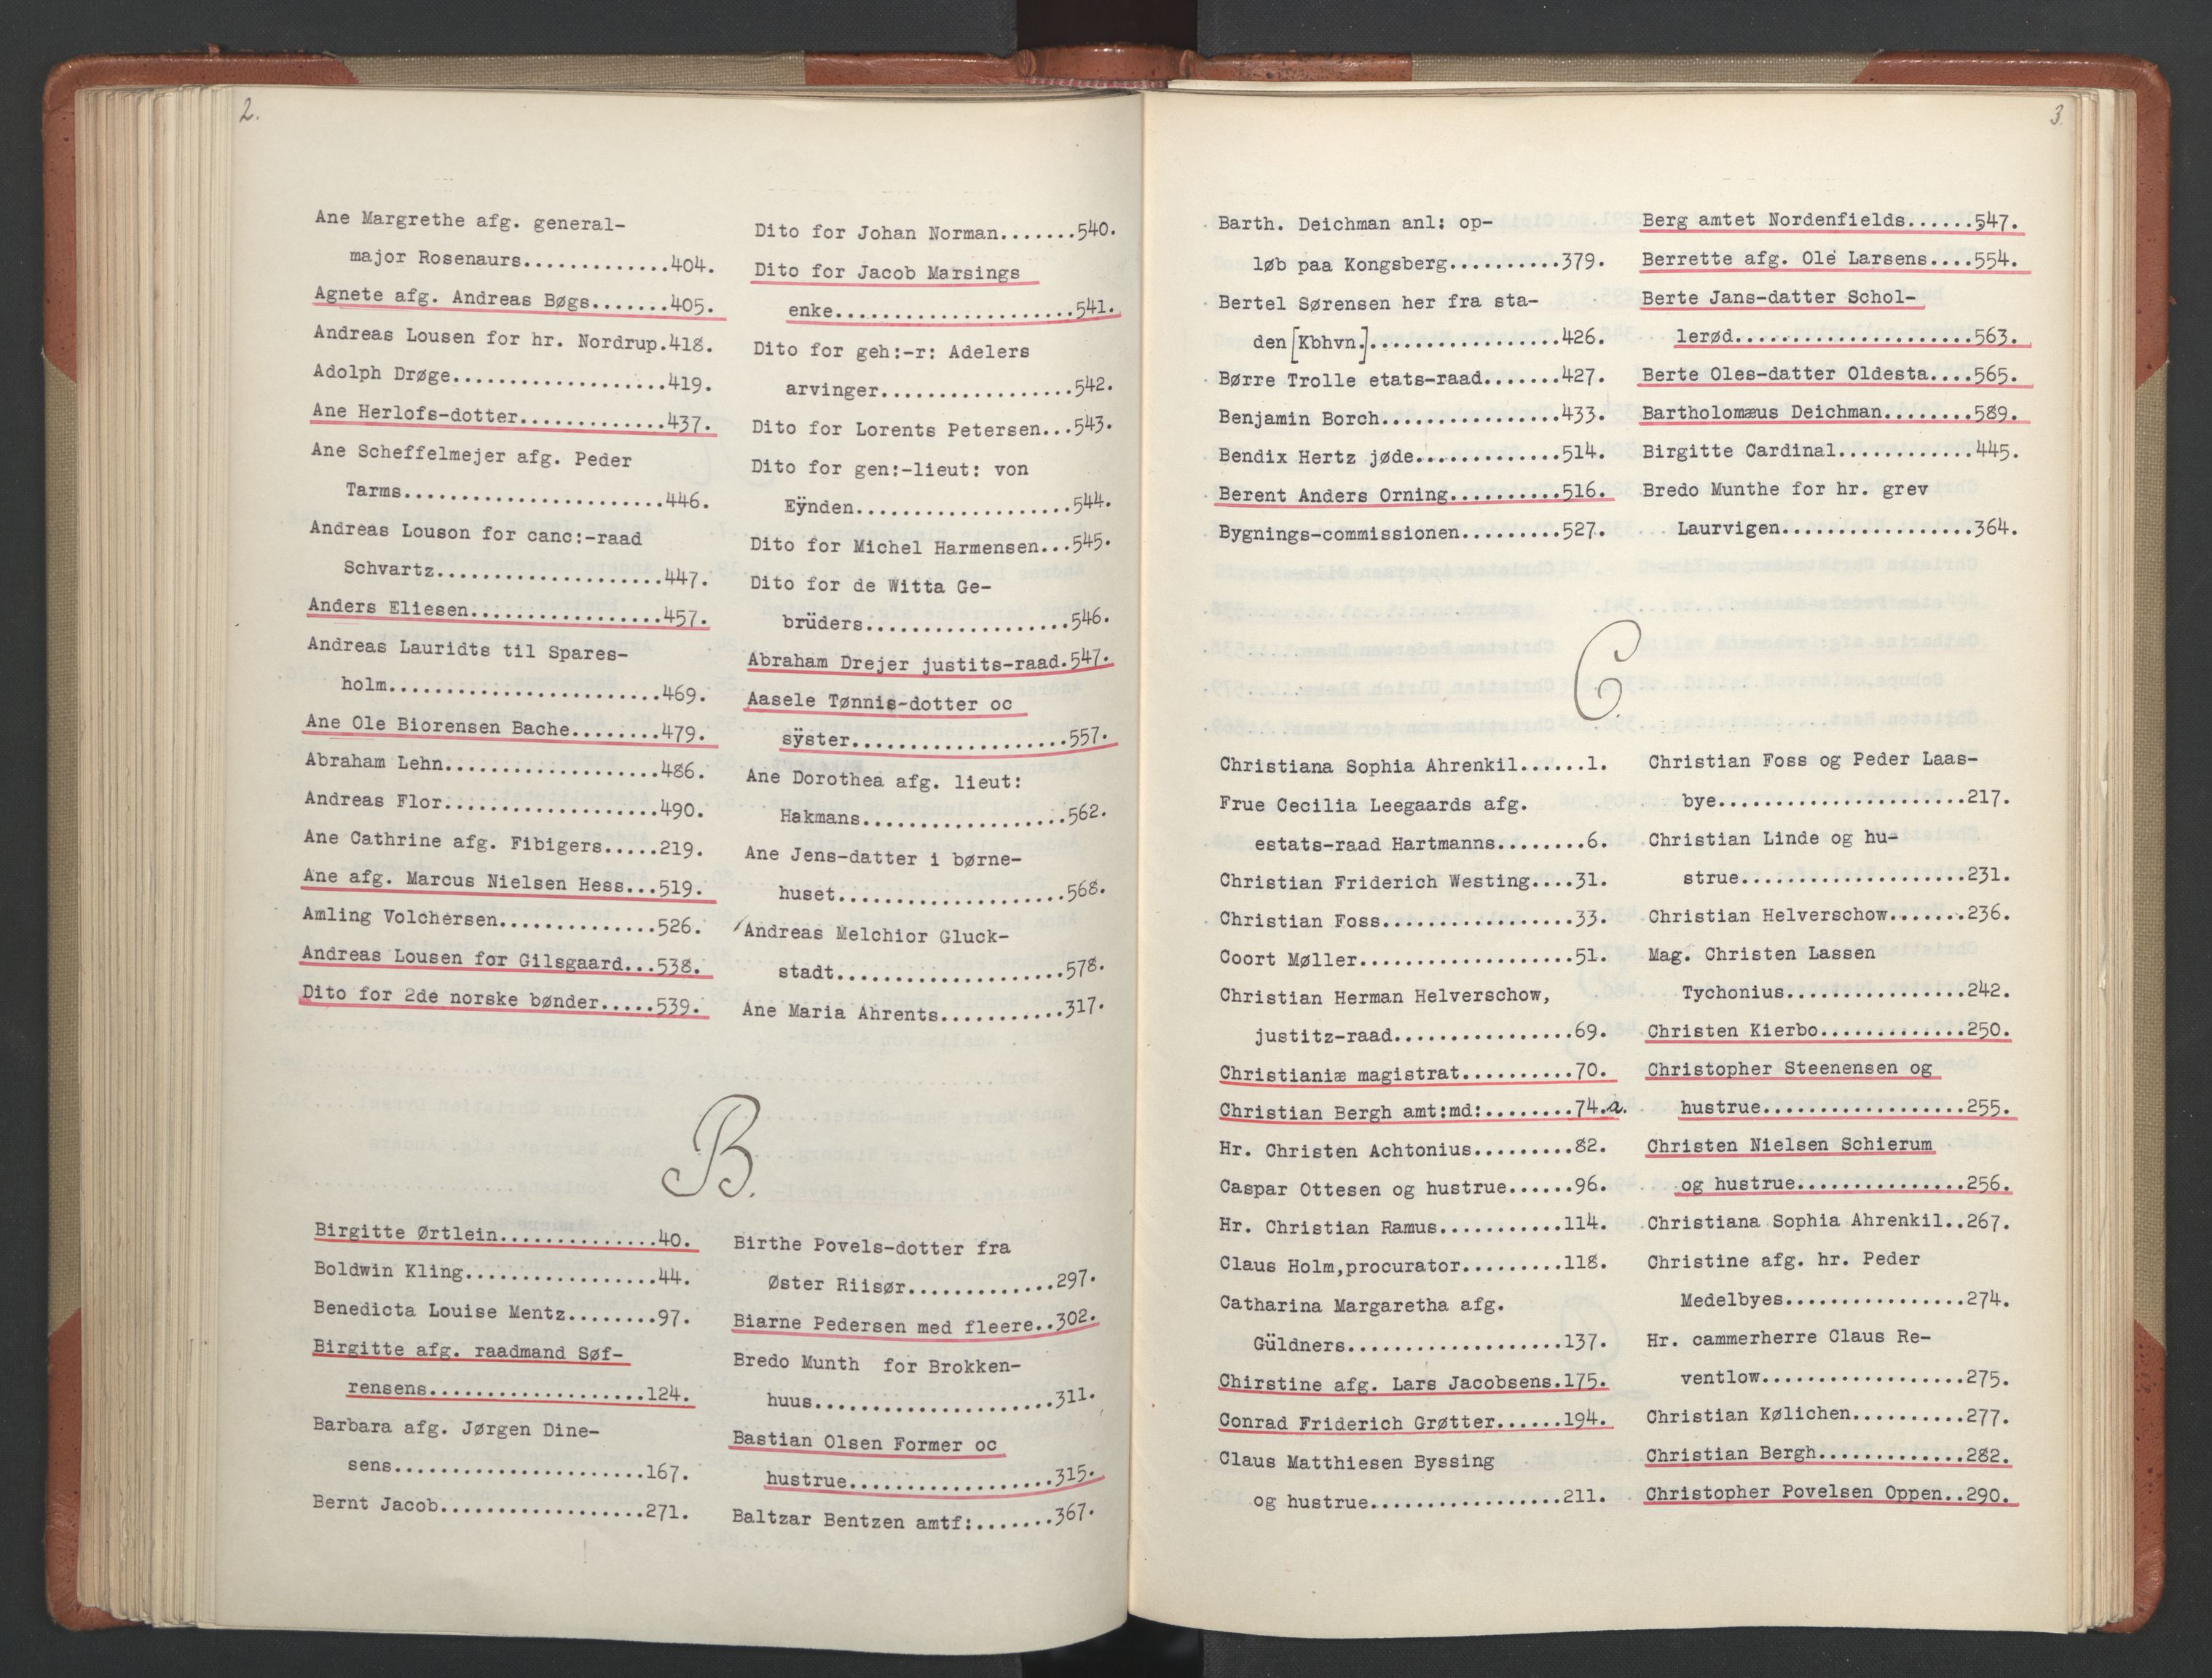 2.
Ane Margrethe afg. general-
major Rosenaurs.............404.
Agnete afg. Andreas Bøgs.......405.
Andreas Lousen for hr. Nordrup.418.
Adolph Drøge...................419.
Ane Herlofs-dotter.............437.
Ane Scheffelmejer afg. Peder
Tarms.......................446.
Andreas Louson for canc:-raad
Schvartz....................447.
Anders Eliesen.................457.
Andreas Lauridts til Spares-
holm........................469.
Ane Ole Biorensen Bache........479.
Abraham Lehn...................486.
Andreas Flor...................490.
Ane Cathrine afg. Fibigers.....219.
Ane afg. Marcus Nielsen Hess...519.
Amling Volchersen..............526.
Andreas Lousen for Gilsgaard...538.
Dito for 2de norske bønder.....539.
Dito for Johan Norman.......540.
Dito for Jacob Marsings
enke.....................541.
Dito for geh:-r: Adelers
arvinger.................542.
Dito for Lorents Petersen...543.
Dito for gen:-lieut: von
Eÿnden...................544.
Dito for Michel Harmensen...545.
Dito for de Witta Ge-
brüders..................546.
Abraham Drejer justits-raad.547.
Aasele Tønnis-dotter oc
sÿster...................557.
Ane Dorothea afg. lieut:
Hakmans..................562.
Ane Jens-datter i børne-
huset....................568.
Andreas Melchior Gluck-
stadt....................578.
Ane Maria Ahrents...........317.
B.
Birgitte Ørtlein..............40.
Boldwin Kling.................44.
Benedicta Louise Mentz........97.
Birgitte afg. raadmand Søf-
rensens...................124.
Barbara afg. Jørgen Dine-
sens......................167.
Bernt Jacob..................271.
Birthe Povels-dotter fra
Øster Riisør.............297.
Biarne Pedersen med fleere..302.
Bredo Munth for Brokken-
huus.....................311.
Bastian Olsen Former oc
hustrue..................315.
Baltzar Bentzen amtf:.......367.
3.
Barth. Deichman anl: op-
løb paa Kongsberg..........379.
Bertel Sørensen her fra sta-
den[Kbhvn.].................426.
Børre Trolle etats-raad.......427.
Benjamin Borch................433.
Bendix Hertz jøde.............514.
Berent Anders Orning..........516.
Bygnings-commissionen.........527.
Berg amtet Nordenfields......547.
Berrette afg. Ole Larsens....554.
Berte Jans-datter Schol-
lerød.....................563.
Berte Oles-datter Oldesta....565.
Bartholomæus Deichman........589.
Birgitte Cardinal............445.
Bredo Munthe for hr. grev
Laurvigen.................364.
C.
Christiana Sophia Ahrenkil......1.
Frue Cecilia Leegaards afg.
estats-raad Hartmanns........6.
Christian Friderich Westing....31.
Christian Foss.................33.
Coort Møller...................51.
Christian Herman Helverschow,
justitz-raad................69.
Christianiæ magistrat..........70.
Christian Bergh amt:md:........74.a.
Hr. Christen Achtonius.........82.
Caspar Ottesen og hustrue......96.
Hr. Christian Ramus...........114.
Claus Holm,procurator.........118.
Catharina Margaretha afg.
Güldners...................137.
Chirstine afg. Lars Jacobsens.175.
Conrad Friderich Grøtter......194.
Claus Matthiesen Byssing
og hustrue.................211.
Christian Foss og Peder Laas-
bye......................217.
Christian Linde og hu-
strue....................231.
Christian Helverschow.......236.
Mag. Christen Lassen
Tychonius................242.
Christen Kierbo.............250.
Christopher Steenensen og
hustrue..................255.
Christen Nielsen Schierum
og hustrue...............256.
Christiana Sophia Ahrenkil..267.
Christine afg. hr. Peder
Medelbyes................274.
Hr. cammerherre Claus Re-
ventlow..................275.
Christian Kølichen..........277.
Christian Bergh.............282.
Christopher Povelsen Oppen..290.